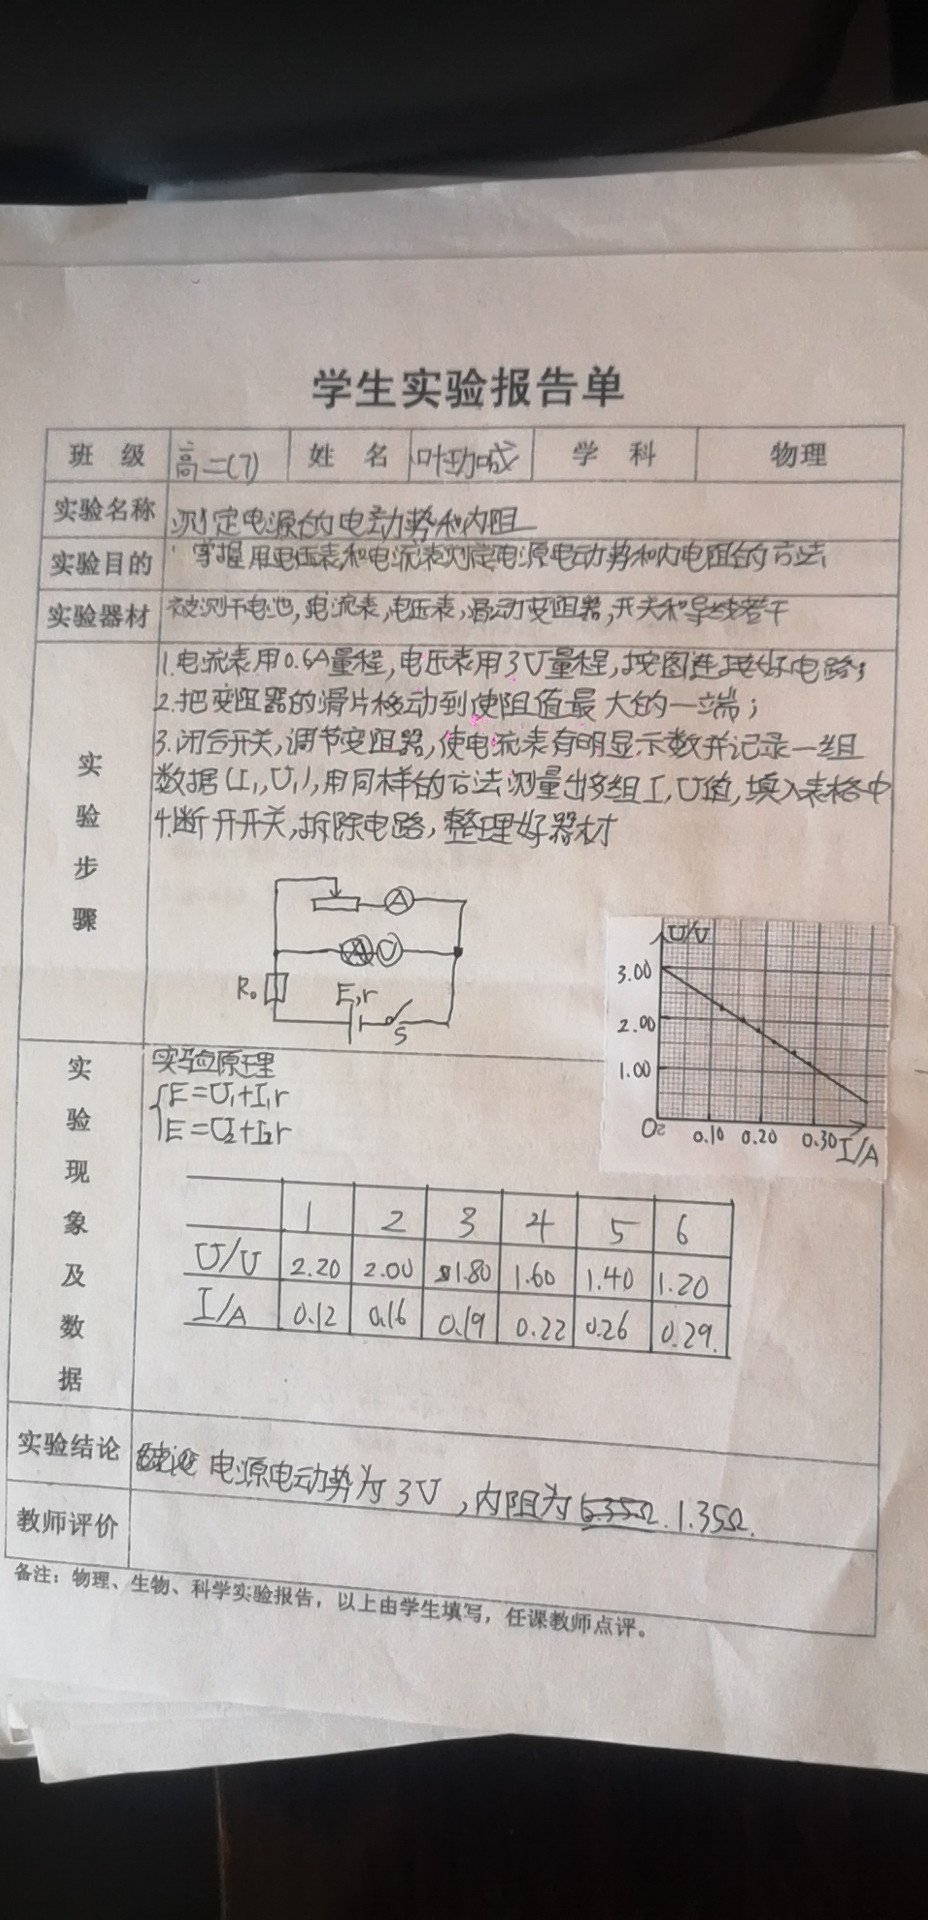 学生实验报告单
班 级 高二(7) 姓 名 学 科 物理
实验名称 测定电源的电动势和内阻
实验目的 掌握用电压表和电流表测定电源电动势和内电阻的方法
实验器材 被测干电池,电流表,电压表,滑动变阻器,开关和导线若干
实验步骤
1.电流表用0.6A量程,电压表用3V量程,按图连接好电路;
2.把变阻器的滑片移动到使阻值最大的一端;
3.闭合开关,调节变阻器,使电流表有明显示数并记录一组
数据(I₁,U₁),用同样的方法测量出多组I,U值,填入表格中
4.断开开关,拆除电路,整理好器材
A
V
R₀
E,r
S
U/V
3.00
2.00
1.00
0 0.10 0.20 0.30 I/A
实验现象及数据
实验原理
E=U₁+I₁r
E=U₂+I₂r
1 2 3 4 5 6
U/V 2.20 2.00 1.80 1.60 1.40 1.20
I/A 0.12 0.16 0.19 0.22 0.26 0.29.
实验结论 电源电动势为3V,内阻为 1.35Ω.
教师评价
备注:物理、生物、科学实验报告,以上由学生填写,任课教师点评。